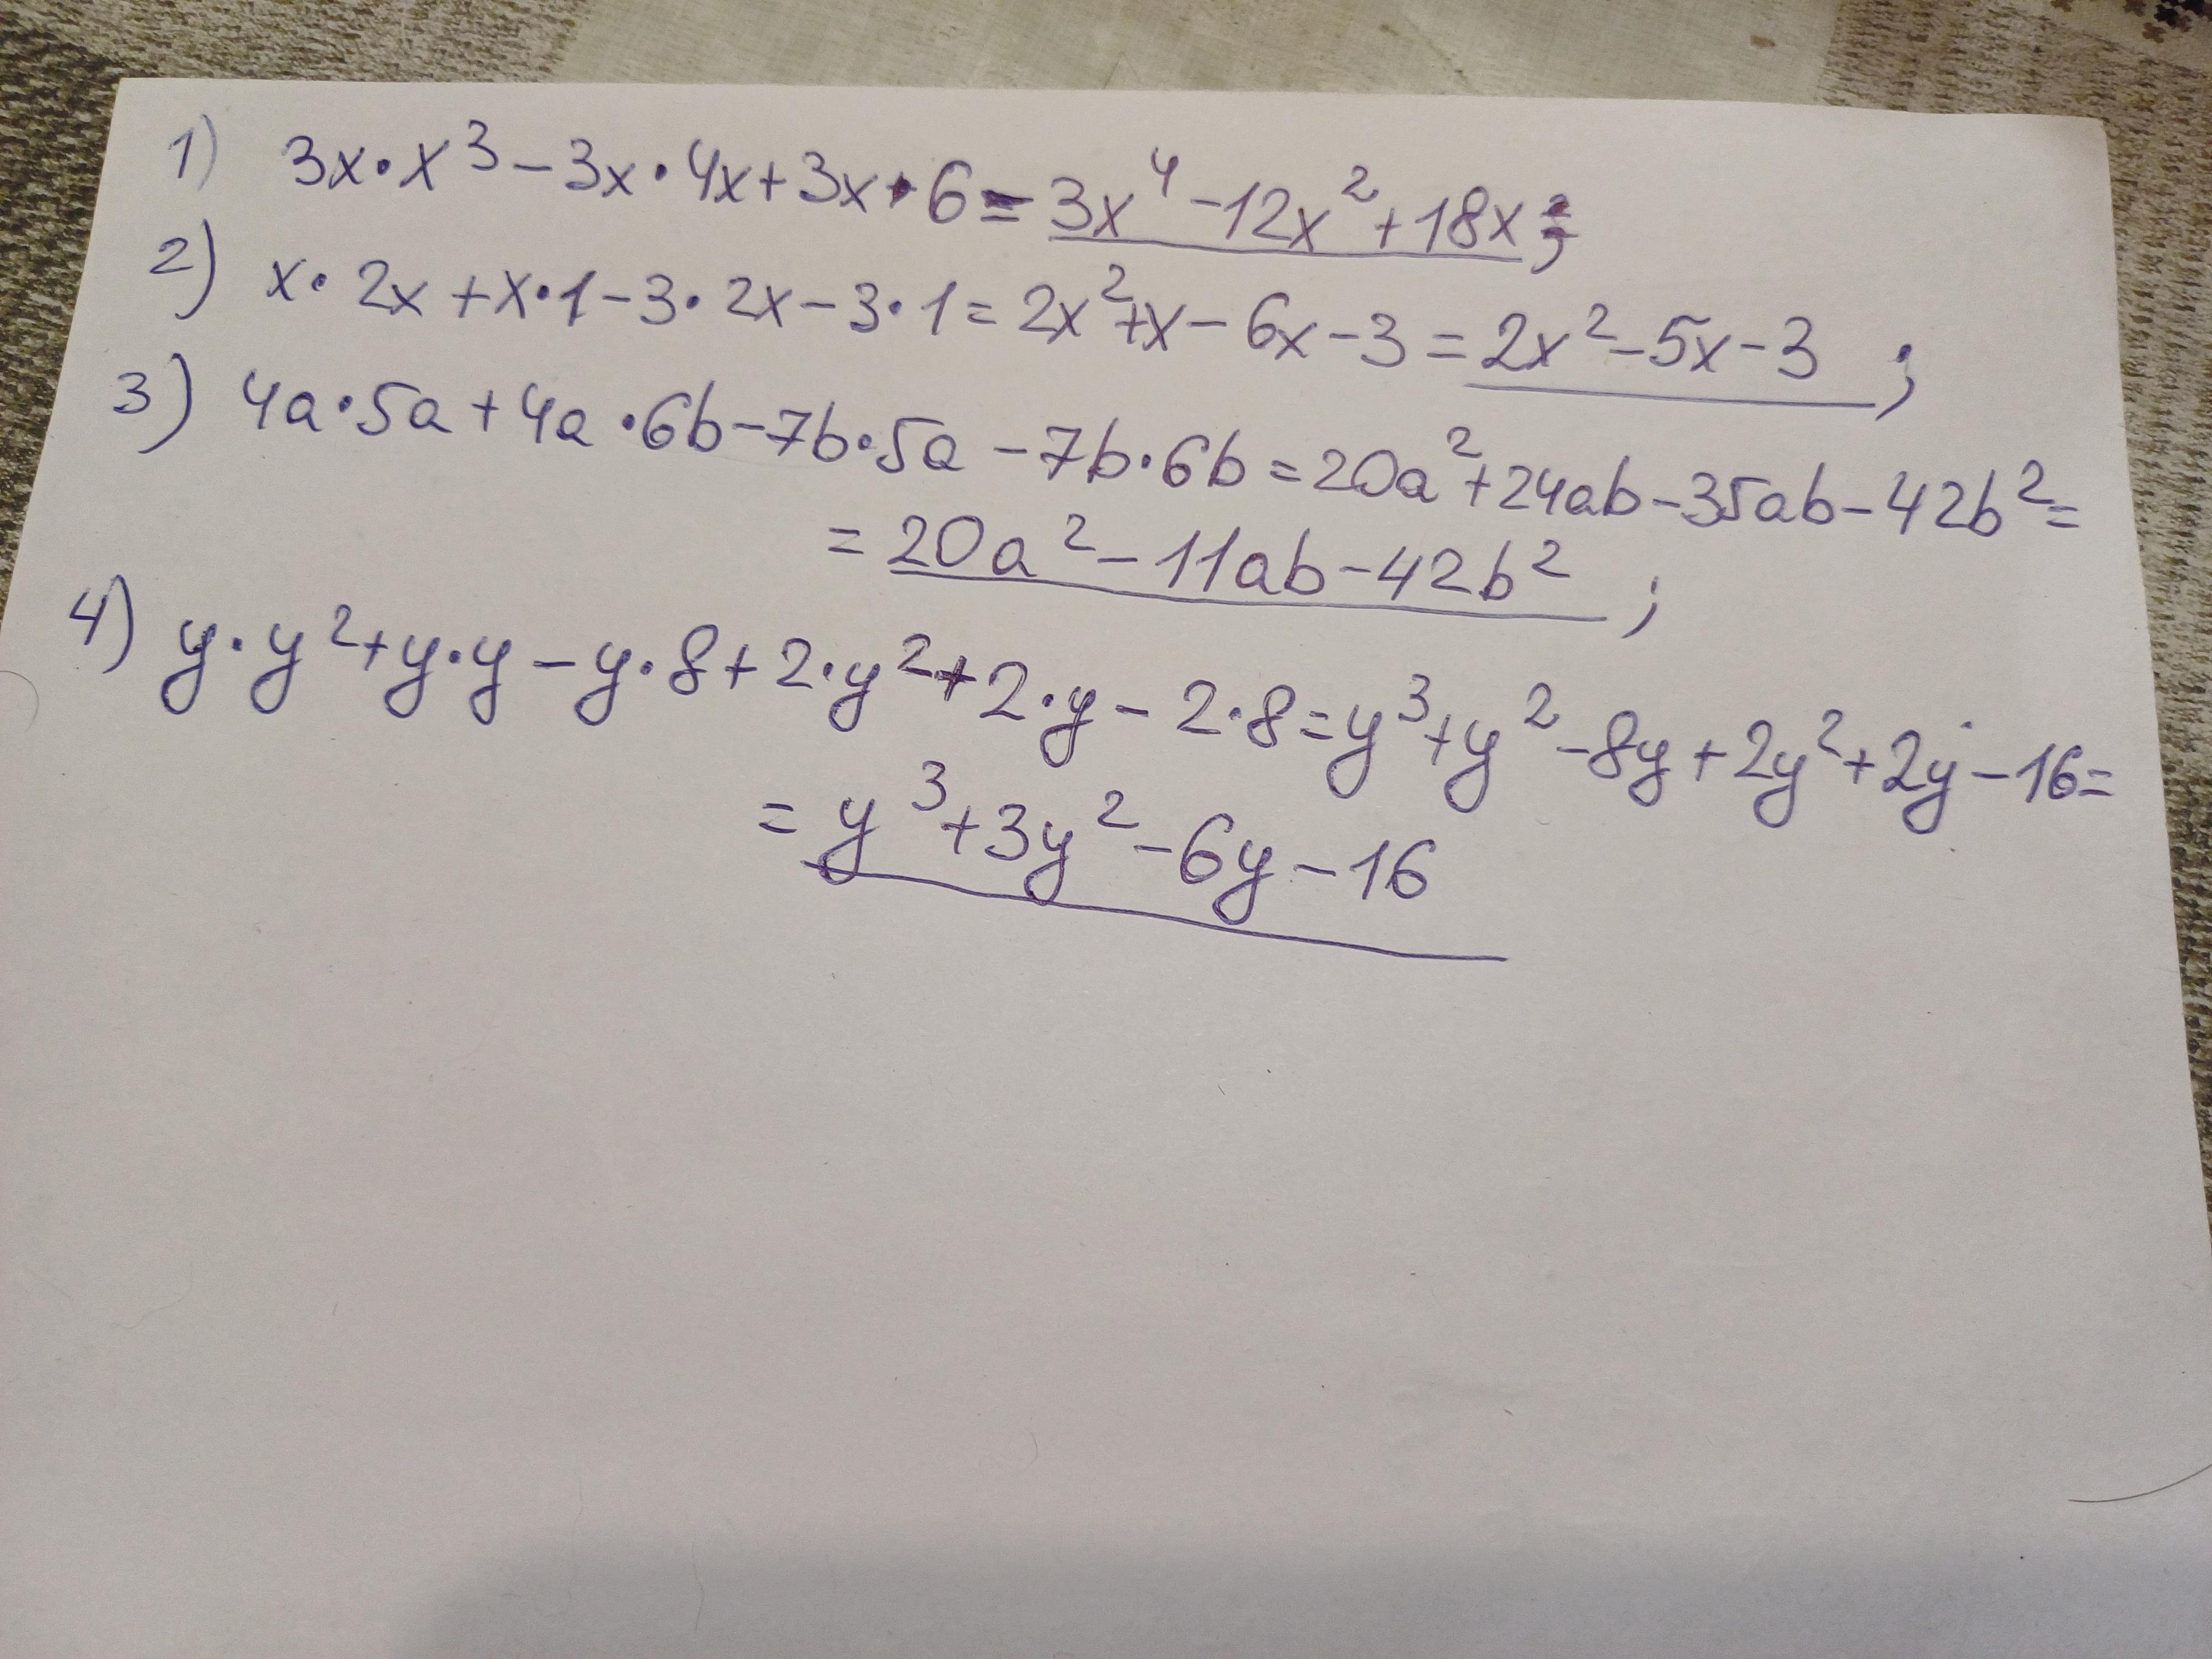 1) 3x·x³-3x·4x+3x·6=3x⁴-12x²+18x;
2) x·2x+x·1-3·2x-3·1=2x²+x-6x-3=2x²-5x-3;
3) 4a·5a+4a·6b-7b·5a-7b·6b=20a²+24ab-35ab-42b²=
=20a²-11ab-42b²;
4) y·y²+y·y-y·8+2·y²+2·y-2·8=y³+y²-8y+2y²+2y-16=
=y³+3y²-6y-16